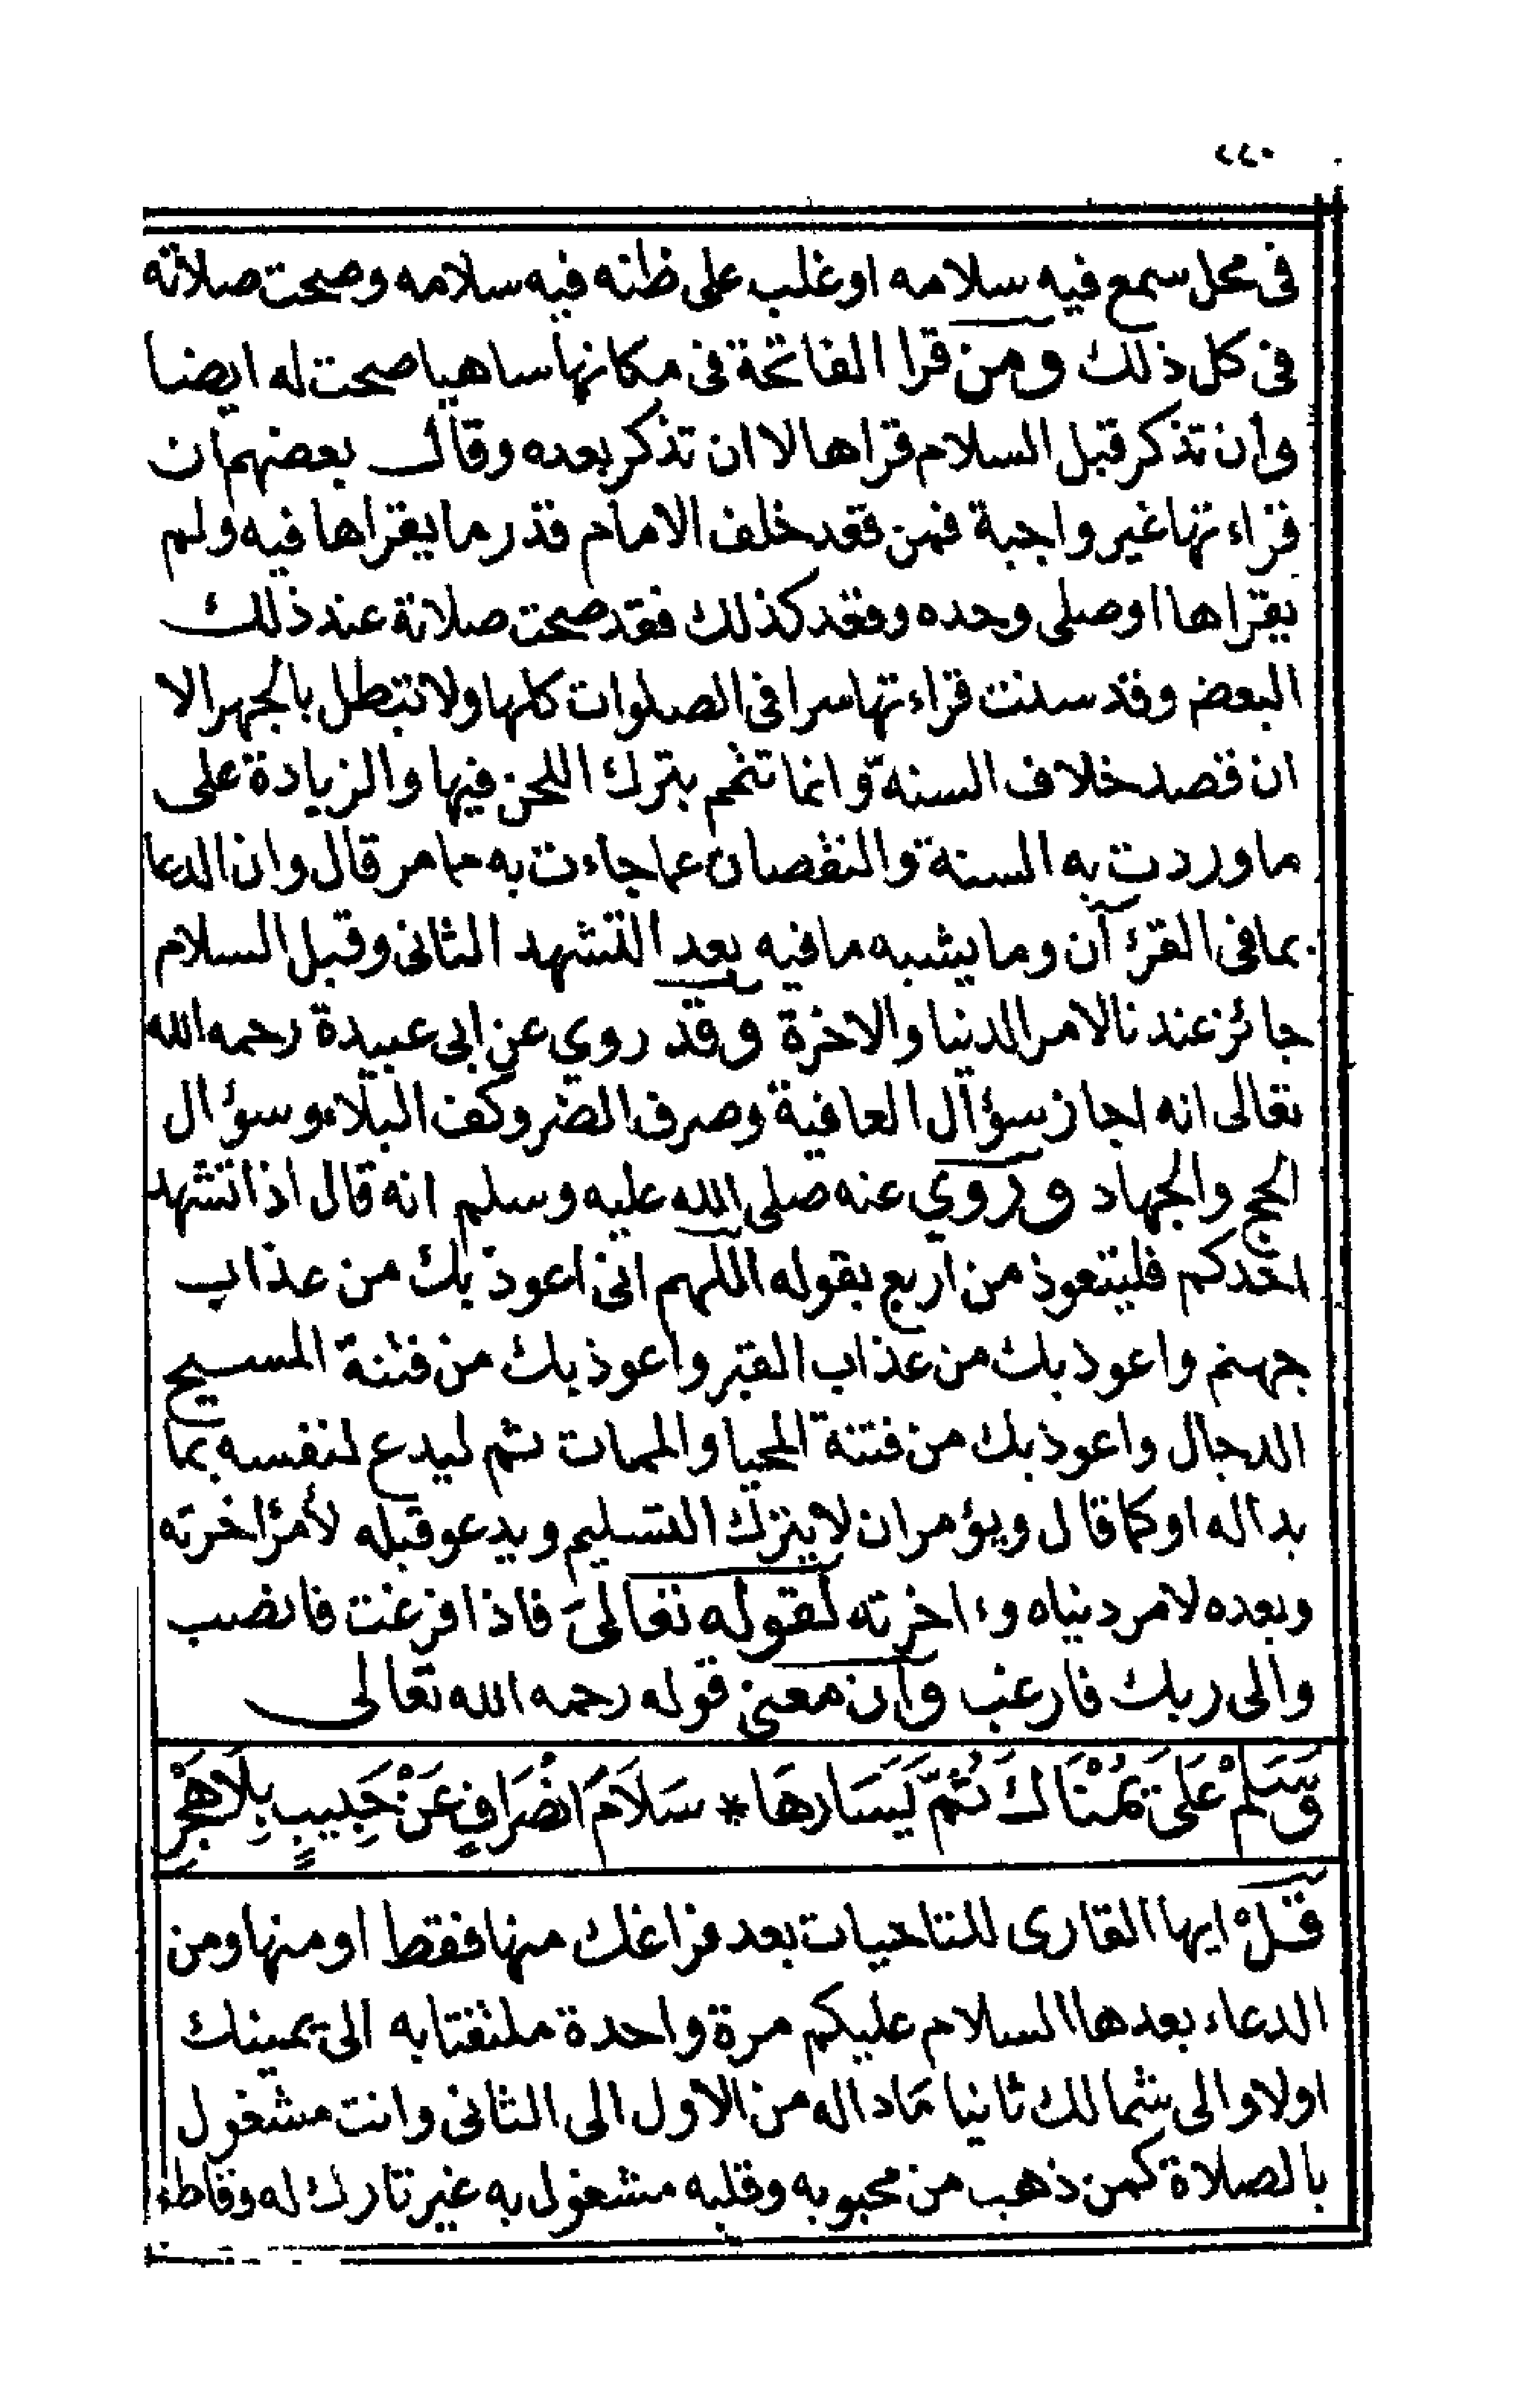 ٢٤٠
فى محل سمع فيه سلامه او غلب على ظنه فيه سلامه وصحت صلاته
فى كل ذلك ومن قرا الفاتحة فى مكانها ساهيا صحت له ايضا
وان تذكر قبل السلام قراها لا ان تذكر بعده وقال بعضهم ان
قراءتها غير واجبة فمن قعد خلف الامام قدر ما يقراها فيه ولم
يقراها او صلى وحده وقعد كذلك فقد صحت صلاتة عند ذلك
البعض وقد سنت قراءتها سرا فى الصلوات كلها ولا تبطل بالجهر الا
ان قصد خلاف السنة وانما تتم بترك اللحن فيها والزيادة على
ما وردت به السنة والنقصان عما جاءت به مما مر قال وان الدعا
بما فى القرآن وما يشبه ما فيه بعد التشهد الثانى وقبل السلام
جائز عندنا لامر الدنيا والاخرة وقد روي عن ابى عبيدة رحمه الله
تعالى انه اجاز سؤال العافية وصرف الضر وكف البلاء وسؤال
الحج والجهاد وروي عنه صلى الله عليه وسلم انه قال اذا تشهد
احدكم فليتعوذ من اربع بقوله اللهم انى اعوذ بك من عذاب
جهنم واعوذ بك من عذاب القبر واعوذ بك من فتنة المسيح
الدجال واعوذ بك من فتنة المحيا والممات ثم ليدع لنفسه بما
بدا له او كما قال ويؤمر ان لا يترك التسليم ويدعو قبله لأمر اخرته
وبعده لامر دنياه وءاخرته لقوله تعالىَ فاذا فرغت فانصب
والى ربك فارغب وان معنى قوله رحمه الله تعالى
وَسَلِّمْ عَلَى يُمْنَاكَ ثُمَّ يَسَارِهَا * سَلَامَ انْصِرَافٍ عَنْ حَبِيبٍ بِلَا هَجْرِ
قل ايها القارى للتاحيات بعد فراغك منها فقط او منها ومن
الدعاء بعدها السلام عليكم مرة واحدة ملتفتا به الى يمينك
اولا والى شمالك ثانيا مادا له من الاول الى الثانى وانت مشغول
بالصلاة كمن ذهب من محبوبه وقلبه مشغول به غير تارك له وقاطع